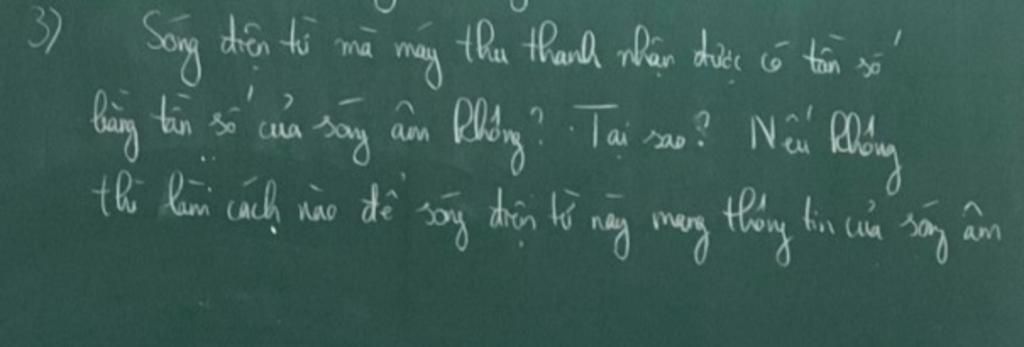 3) Sóng điện từ mà máy thu thanh nhận được có tần số
bằng tần số của sóng âm không? Tại sao? Nếu không
thì làm cách nào để sóng điện từ này mang thông tin của sóng âm